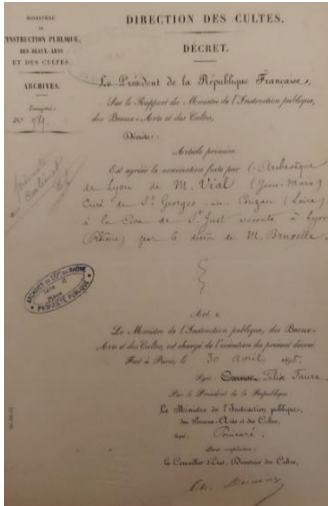 MINISTÈRE
DE
L'INSTRUCTION PUBLIQUE,
DES BEAUX-ARTS
ET DES CULTES.
ARCHIVES.
DIRECTION DES CULTES.
DÉCRET.
Le Président de la République Française,
Sur le Rapport du Ministre de l'Instruction publique,
des Beaux-Arts et des Cultes,
Décrète:
Article premier.
Est agréée la nomination faite par l'Archevêque
de Lyon de M. Vial (Jean-Marie)
Curé de St Georges-en-Couzan (Loire)
à la Cure de St Just vacante à Lyon
(Rhône) par le décès de M.
ARCHIVES DU RHÔNE
PROPRIÉTÉ PUBLIQUE
Art. 2
Le Ministre de l'Instruction publique, des Beaux-
Arts et des Cultes, est chargé de l'exécution du présent décret.
Fait à Paris, le 30 avril 1895.
Signé: Carnot Félix Faure
Par le Président de la République
Le Ministre de l'Instruction publique,
des Beaux-Arts et des Cultes,
Signé: Poincaré.
Pour ampliation:
Le Conseiller d'État, Directeur des Cultes,